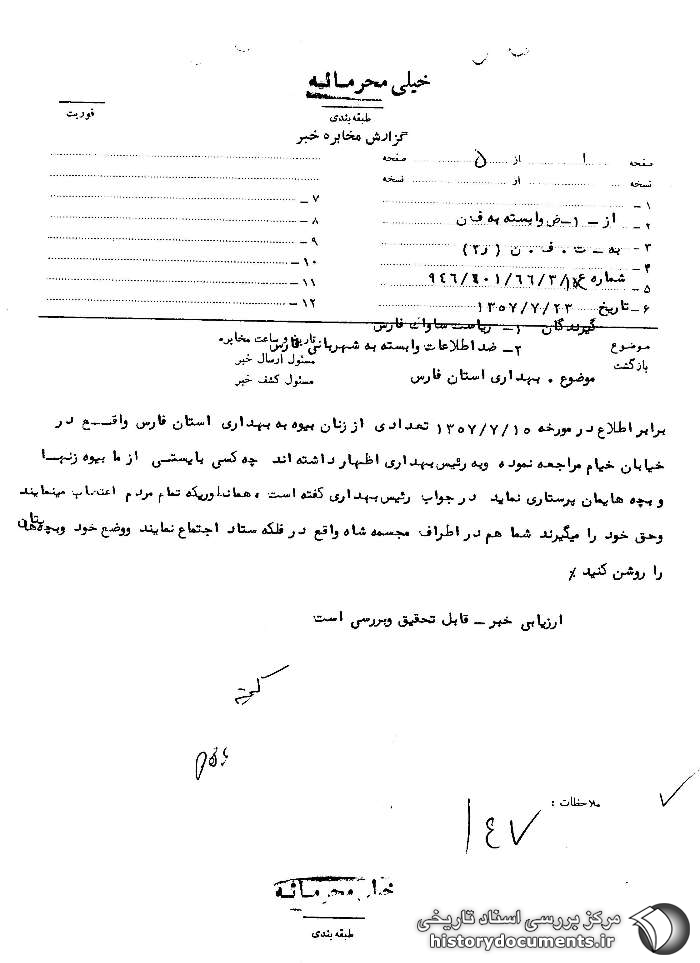 خیلی محرمانه
طبقه بندی
فوریت
گزارش مخابره خبر
صفحه ۱ از ۵ صفحه
نسخه از نسخه
۱ ـ
۲ ـ از ـ ۱ ـ ض وابسته به ف ن
۳ ـ به ـ ت . ف . ن (ر۲)
۴ ـ
۵ ـ شماره
۶ ـ تاریخ ۱۳۵۷/۷/۲۳
۷ ـ
۸ ـ
۹ ـ
۱۰ ـ
۱۱ ـ
۱۲ ـ
گیرندگان ۱ ـ ریاست ساواک فارس
۲ ـ ضد اطلاعات وابسته به شهربانی فارس
موضوع
بازگشت
تاریخ و ساعت مخابره
مسئول ارسال خبر
مسئول کشف خبر
موضوع . بهداری استان فارس
برابر اطلاع در مورخه ۱۳۵۷/۷/۱۵ تعدادی از زنان بیوه به بهداری استان فارس واقـــع در
خیابان خیام مراجعه نموده وبه رئیس بهداری اظهار داشته اند چه کسی بایستی از ما بیوه زنهـا
و بچه هایمان پرستاری نماید در جواب رئیس بهداری گفته است ، همانطوریکه تمام مردم اعتصاب مینمایند
وحق خود را میگیرند شما هم در اطراف مجسمه شاه واقع در فلکه ستاد اجتماع نمایند ووضع خود وبچه هایتان
را روشن کنید ٪
ارزیابی خبر ـ قابل تحقیق وبررسی است
ملاحظات :
۱۴۷
خیلی محرمانه
طبقه بندی
مرکز بررسی اسناد تاریخی
historydocuments.ir